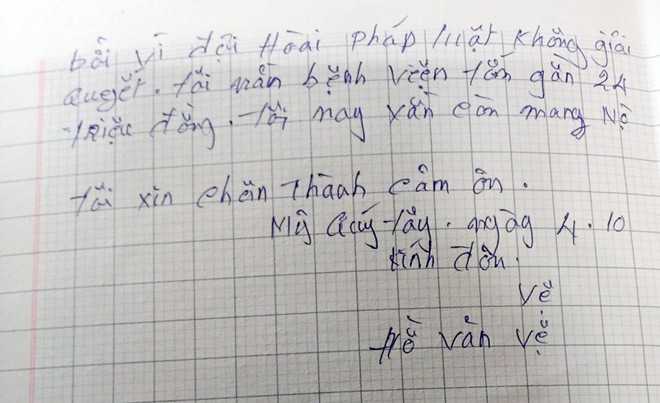 bởi vì đợi Hoài pháp luật không giải
quyết. tôi nằn bệnh viện tốn gần 24
triệu đồng. tới nay vẫn còn mang Nợ
tôi xin chân thành cảm ơn.
Mỹ Quý Tây. ngày 4.10
kính đơn.
Vẽ
Hồ Văn Vẽ